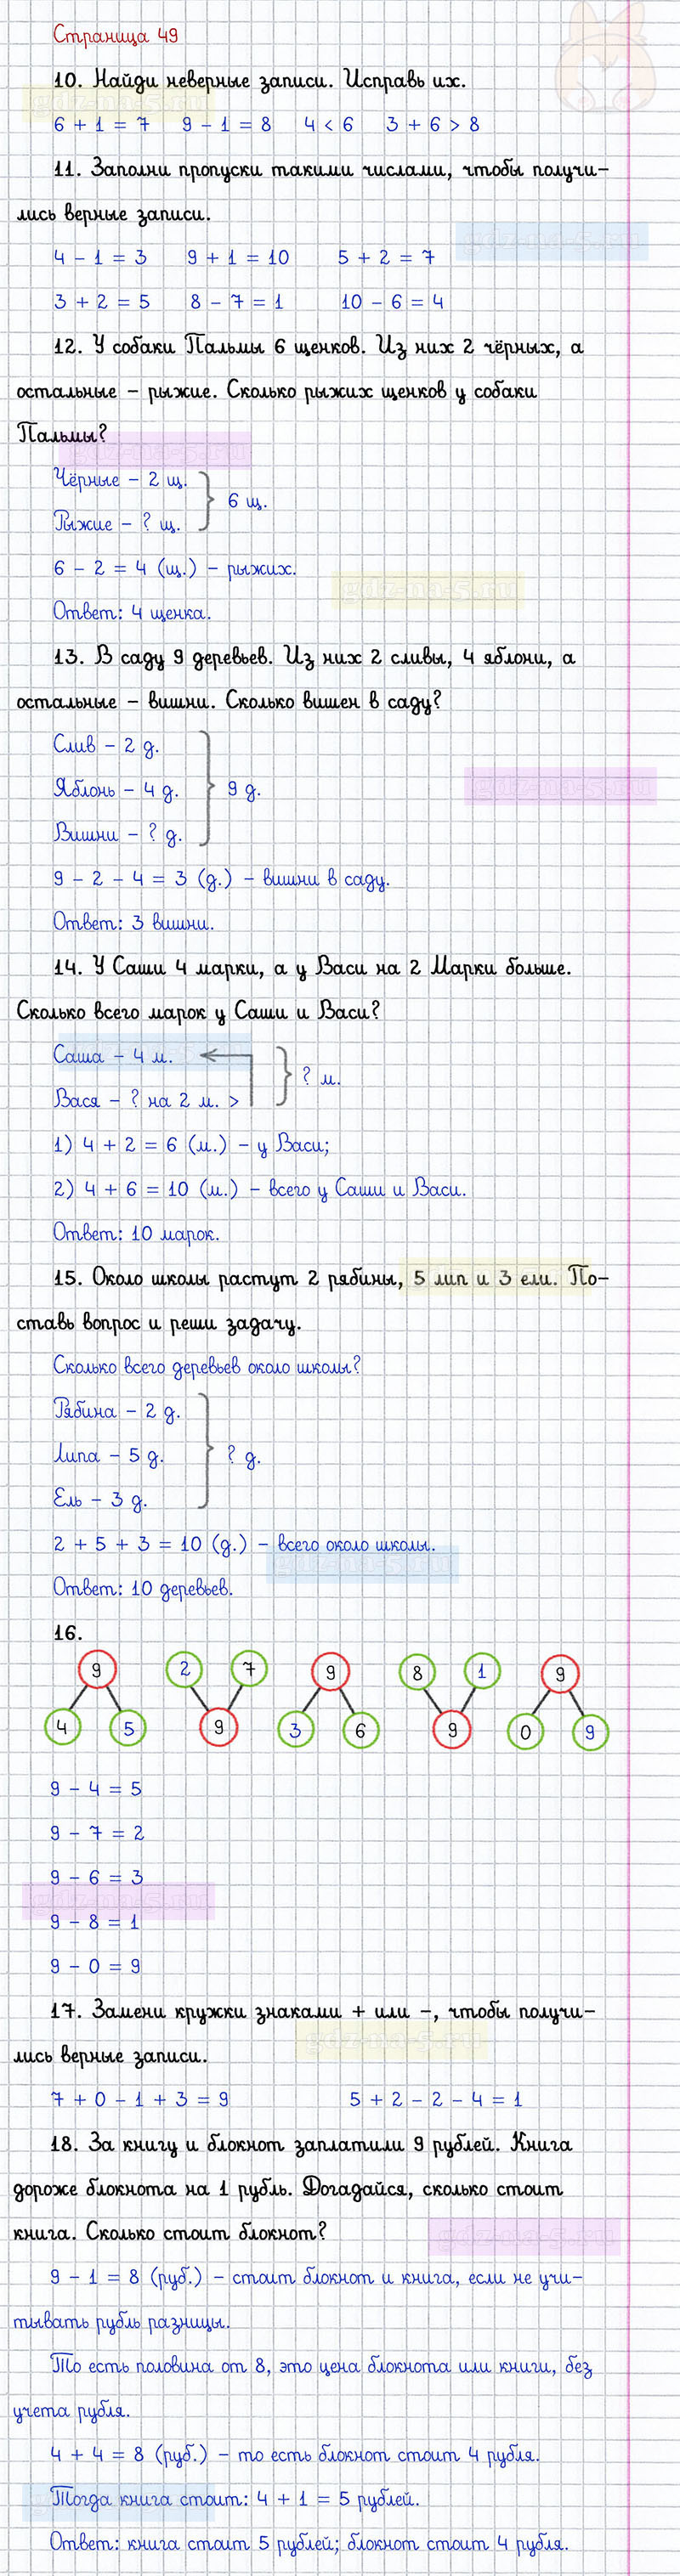 Страница 49
10. Найди неверные записи. Исправь их.
6 + 1 = 7 9 - 1 = 8 4 < 6 3 + 6 > 8
11. Заполни пропуски такими числами, чтобы получи-
лись верные записи.
4 - 1 = 3 9 + 1 = 10 5 + 2 = 7
3 + 2 = 5 8 - 7 = 1 10 - 6 = 4
12. У собаки Пальмы 6 щенков. Из них 2 чёрных, а
остальные - рыжие. Сколько рыжих щенков у собаки
Пальмы?
gdz-na-5.ru
Чёрные - 2 щ.
6 щ.
Рыжие - ? щ.
6 - 2 = 4 (щ.) - рыжих.
gdz-na-5.ru
Ответ: 4 щенка.
13. В саду 9 деревьев. Из них 2 сливы, 4 яблони, а
остальные - вишни. Сколько вишен в саду?
Слив - 2 д.
Яблонь - 4 д. 9 д.
gdz-na-5.ru
Вишни - ? д.
9 - 2 - 4 = 3 (д.) - вишни в саду.
Ответ: 3 вишни.
14. У Саши 4 марки, а у Васи на 2 Марки больше.
Сколько всего марок у Саши и Васи?
Саша - 4 м.
? м.
Вася - ? на 2 м. >
1) 4 + 2 = 6 (м.) - у Васи;
2) 4 + 6 = 10 (м.) - всего у Саши и Васи.
Ответ: 10 марок.
15. Около школы растут 2 рябины, 5 лип и 3 ели. По-
ставь вопрос и реши задачу.
Сколько всего деревьев около школы?
Рябина - 2 д.
Липа - 5 д. ? д.
Ель - 3 д.
2 + 5 + 3 = 10 (д.) - всего около школы.
gdz-na-5.ru
Ответ: 10 деревьев.
16.
9 2 7 9 8 1 9
4 5 9 3 6 9 0 9
9 - 4 = 5
9 - 7 = 2
9 - 6 = 3
gdz-na-5.ru
9 - 8 = 1
9 - 0 = 9
17. Замени кружки знаками + или -, чтобы получи-
gdz-na-5.ru
лись верные записи.
7 + 0 - 1 + 3 = 9 5 + 2 - 2 - 4 = 1
18. За книгу и блокнот заплатили 9 рублей. Книга
дороже блокнота на 1 рубль. Догадайся, сколько стоит
книга. Сколько стоит блокнот?
gdz-na-5.ru
9 - 1 = 8 (руб.) - стоит блокнот и книга, если не учи-
тывать рубль разницы.
То есть половина от 8, это цена блокнота или книги, без
учета рубля.
4 + 4 = 8 (руб.) - то есть блокнот стоит 4 рубля.
Тогда книга стоит: 4 + 1 = 5 рублей.
Ответ: книга стоит 5 рублей; блокнот стоит 4 рубля.